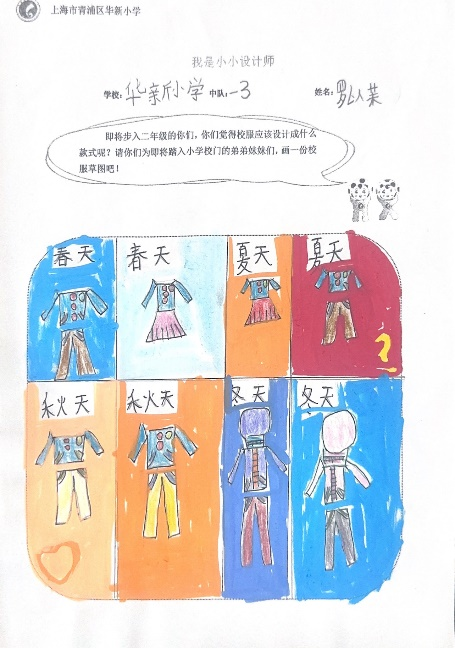 上海市青浦区华新小学
我是小小设计师
学校：华新小学 中队：一3 姓名：
即将步入二年级的你们，你们觉得校服应该设计成什么
款式呢？请你们为即将踏入小学校门的弟弟妹妹们，画一份校
服草图吧！
春天 春天 夏天 夏天
秋天 秋天 冬天 冬天